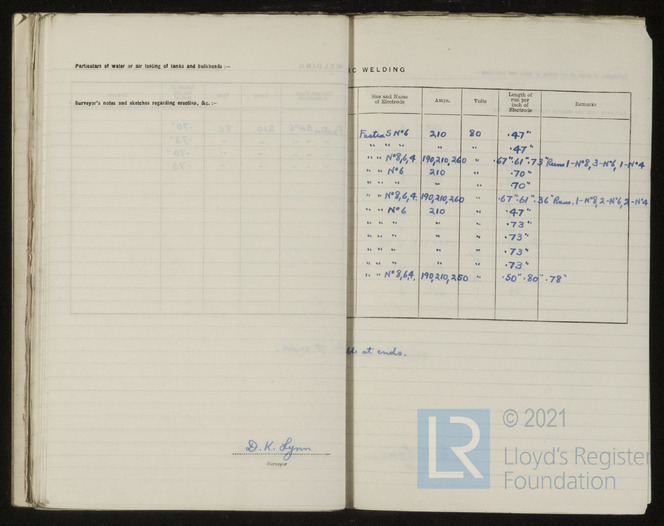 Particulars of water or air testing of tanks and bulkheads :—
Surveyor's notes and sketches regarding erection, &c. :—
D. K. Lynn
Surveyor
IC WELDING
Size and Name of Electrode Amps. Volts Length of run per inch of Electrode Remarks
S Nº6 210 80 .47"
" " " " " .47"
" " Nº8,6,4 190,210,260 " .67" .61" .73" Runs 1-Nº8, 3-Nº6, 1-Nº4
" " Nº6 210 " .70"
" " " " " .70"
" " Nº8,6,4. 190,210,260 " .67" .61" .36" Runs. 1-Nº8, 2-Nº6, 2-Nº4
" " Nº6 210 " .47"
" " " " " .73"
" " " " " .73"
" " " " " .73"
" " " " " .73"
" " Nº8,6,4. 190,210,250 " .50" .80" .78"
at ends.
LR
© 2021
Lloyd's Register
Foundation